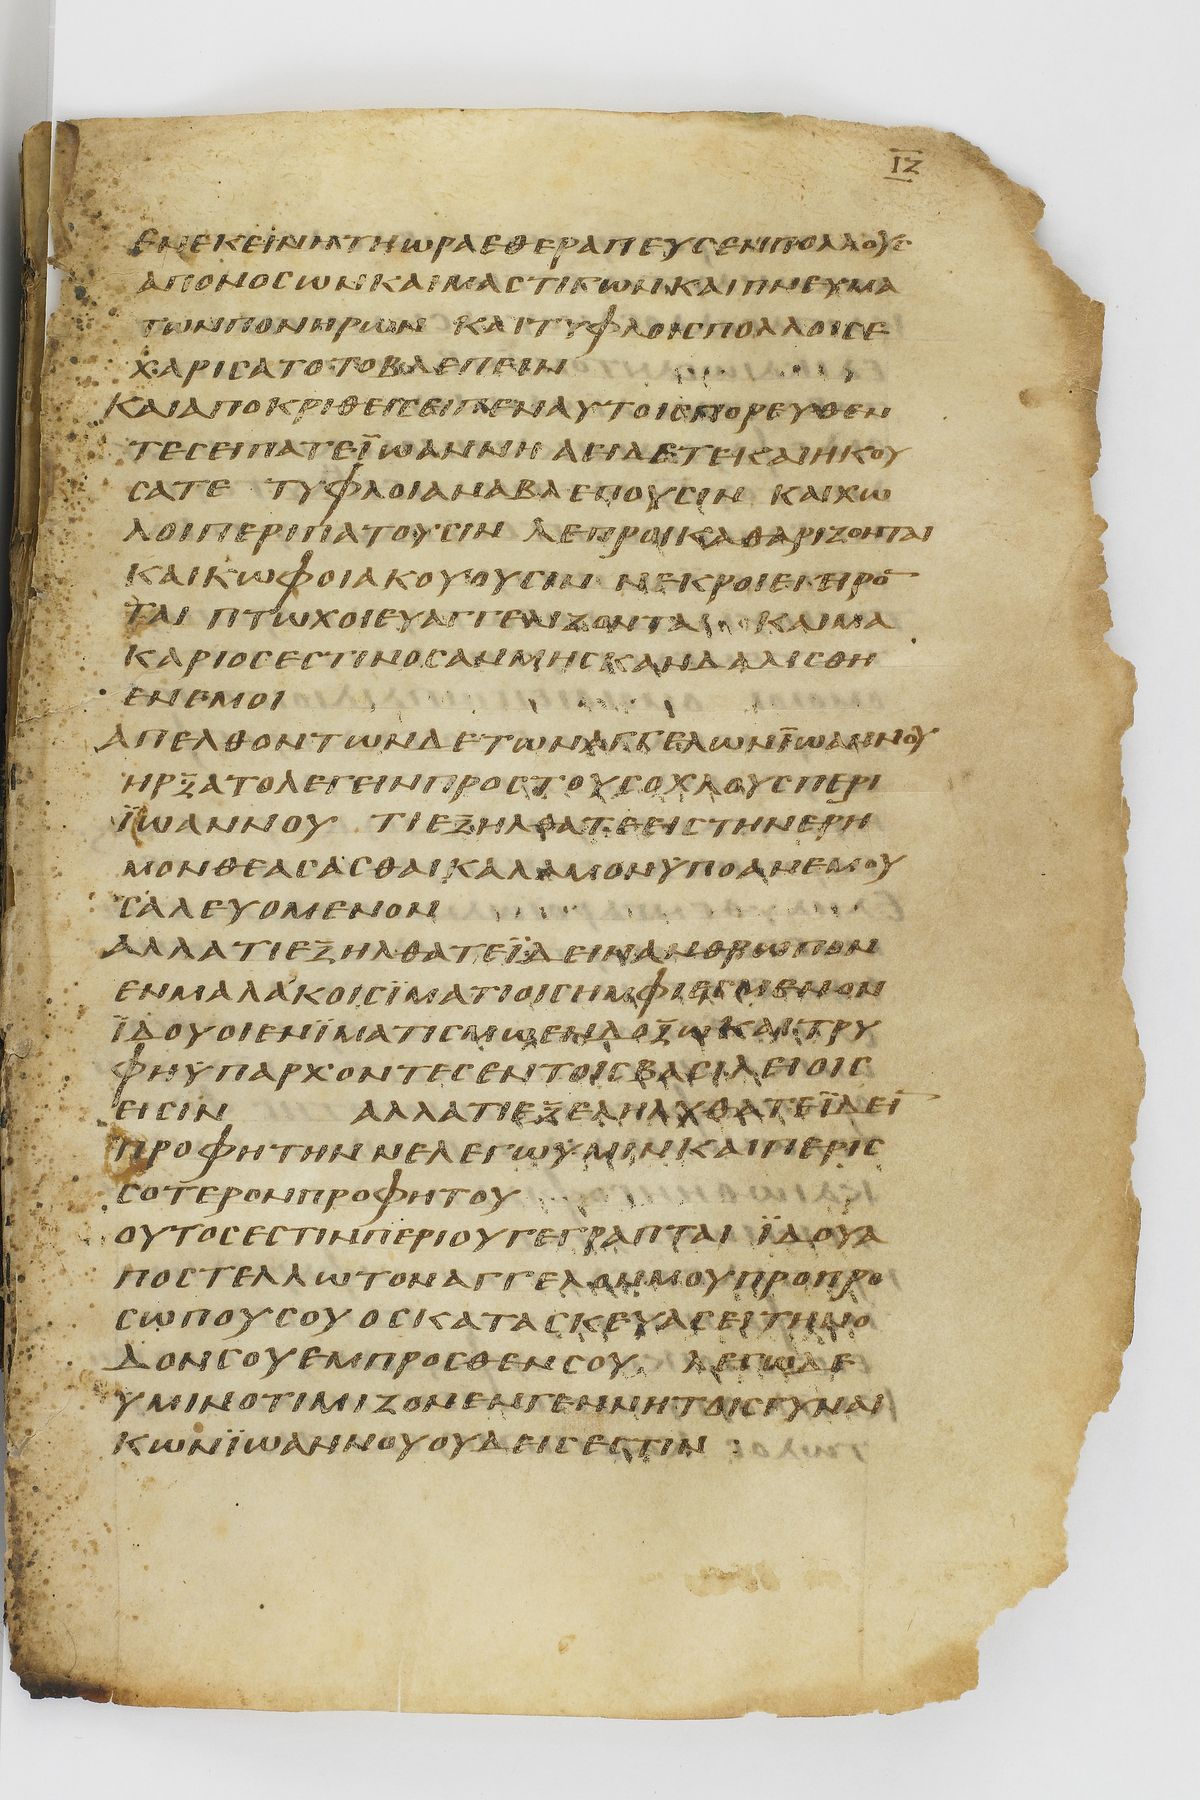 ΙΖ
ΕΝΕΚΕΙΝΗΤΗΩΡΑΕΘΕΡΑΠΕΥϹΕΝΠΟΛΛΟΥϹ
ΑΠΟΝΟϹΩΝΚΑΙΜΑϹΤΙΓΩΝΚΑΙΠΝΕΥΜΑ
ΤΩΝΠΟΝΗΡΩΝ ΚΑΙΤΥΦΛΟΙϹΠΟΛΛΟΙϹΕ
ΧΑΡΙϹΑΤΟΤΟΒΛΕΠΕΙΝ
ΚΑΙΑΠΟΚΡΙΘΕΙϹΕΙΠΕΝΑΥΤΟΙϹΠΟΡΕΥΘΕΝ
ΤΕϹΕΙΠΑΤΕΪΩΑΝΝΗΑΕΙΔΕΤΕΚΑΙΗΚΟΥ
ϹΑΤΕ ΤΥΦΛΟΙΑΝΑΒΛΕΠΟΥϹΙΝ ΚΑΙΧΩ
ΛΟΙΠΕΡΙΠΑΤΟΥϹΙΝ ΛΕΠΡΟΙΚΑΘΑΡΙΖΟΝΤΑΙ
ΚΑΙΚΩΦΟΙΑΚΟΥΟΥϹΙΝ ΝΕΚΡΟΙΕΓΕΙΡΟ̅
ΤΑΙ ΠΤΩΧΟΙΕΥΑΓΓΕΛΙΖΟΝΤΑΙ ΚΑΙΜΑ
ΚΑΡΙΟϹΕϹΤΙΝΟϹΑΝΜΗϹΚΑΝΔΑΛΙϹΘΗ
ΕΝΕΜΟΙ
ΑΠΕΛΘΟΝΤΩΝΔΕΤΩΝΑΓΓΕΛΩΝΪΩΑΝΝΟΥ
ΗΡΞΑΤΟΛΕΓΕΙΝΠΡΟϹΤΟΥϹΟΧΛΟΥϹΠΕΡΙ
ΪΩΑΝΝΟΥ ΤΙΕΞΗΛΘΑΤΕΕΙϹΤΗΝΕΡΗ
ΜΟΝΘΕΑϹΑϹΘΑΙΚΑΛΑΜΟΝΥΠΟΑΝΕΜΟΥ
ϹΑΛΕΥΟΜΕΝΟΝ
ΑΛΛΑΤΙΕΞΗΛΘΑΤΕΪΔΕΙΝΑΝΘΡΩΠΟΝ
ΕΝΜΑΛΑΚΟΙϹΪΜΑΤΙΟΙϹΗΜΦΙΕϹΜΕΝΟΝ
ΪΔΟΥΟΙΕΝΪΜΑΤΙϹΜΩΕΝΔΟΞΩΚΑΙΤΡΥ
ΦΗΫΠΑΡΧΟΝΤΕϹΕΝΤΟΙϹΒΑϹΙΛΕΙΟΙϹ
ΕΙϹΙΝ ΑΛΛΑΤΙΕΞΕΛΗΛΥΘΑΤΕΪΔΕΙ̅
ΠΡΟΦΗΤΗΝΝΕΛΕΓΩΥΜΙΝΚΑΙΠΕΡΙϹ
ϹΟΤΕΡΟΝΠΡΟΦΗΤΟΥ
ΟΥΤΟϹΕϹΤΙΝΠΕΡΙΟΥΓΕΓΡΑΠΤΑΙ ΪΔΟΥΑ
ΠΟϹΤΕΛΛΩΤΟΝΑΓΓΕΛΟΝΜΟΥΠΡΟΠΡΟ
ϹΩΠΟΥϹΟΥΟϹΚΑΤΑϹΚΕΥΑϹΕΙΤΗΝΟ
ΔΟΝϹΟΥΕΜΠΡΟϹΘΕΝϹΟΥ ΛΕΓΩΔΕ
ΥΜΙΝΟΤΙΜΙΖΟΝΕΝΓΕΝΝΗΤΟΙϹΓΥΝΑΙ
ΚΩΝΪΩΑΝΝΟΥΟΥΔΕΙϹΕϹΤΙΝ